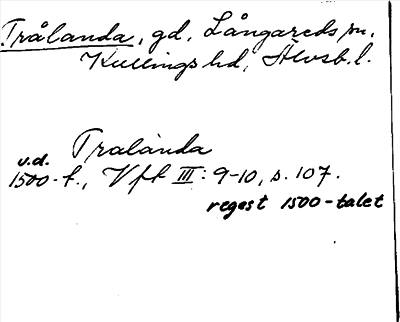 Trålanda, gd, Långareds sn,
Kullings hd, Älvsb. l.
Tralanda
u.d.
1500-t., Vft III: 9-10, s. 107.
regest 1500-talet